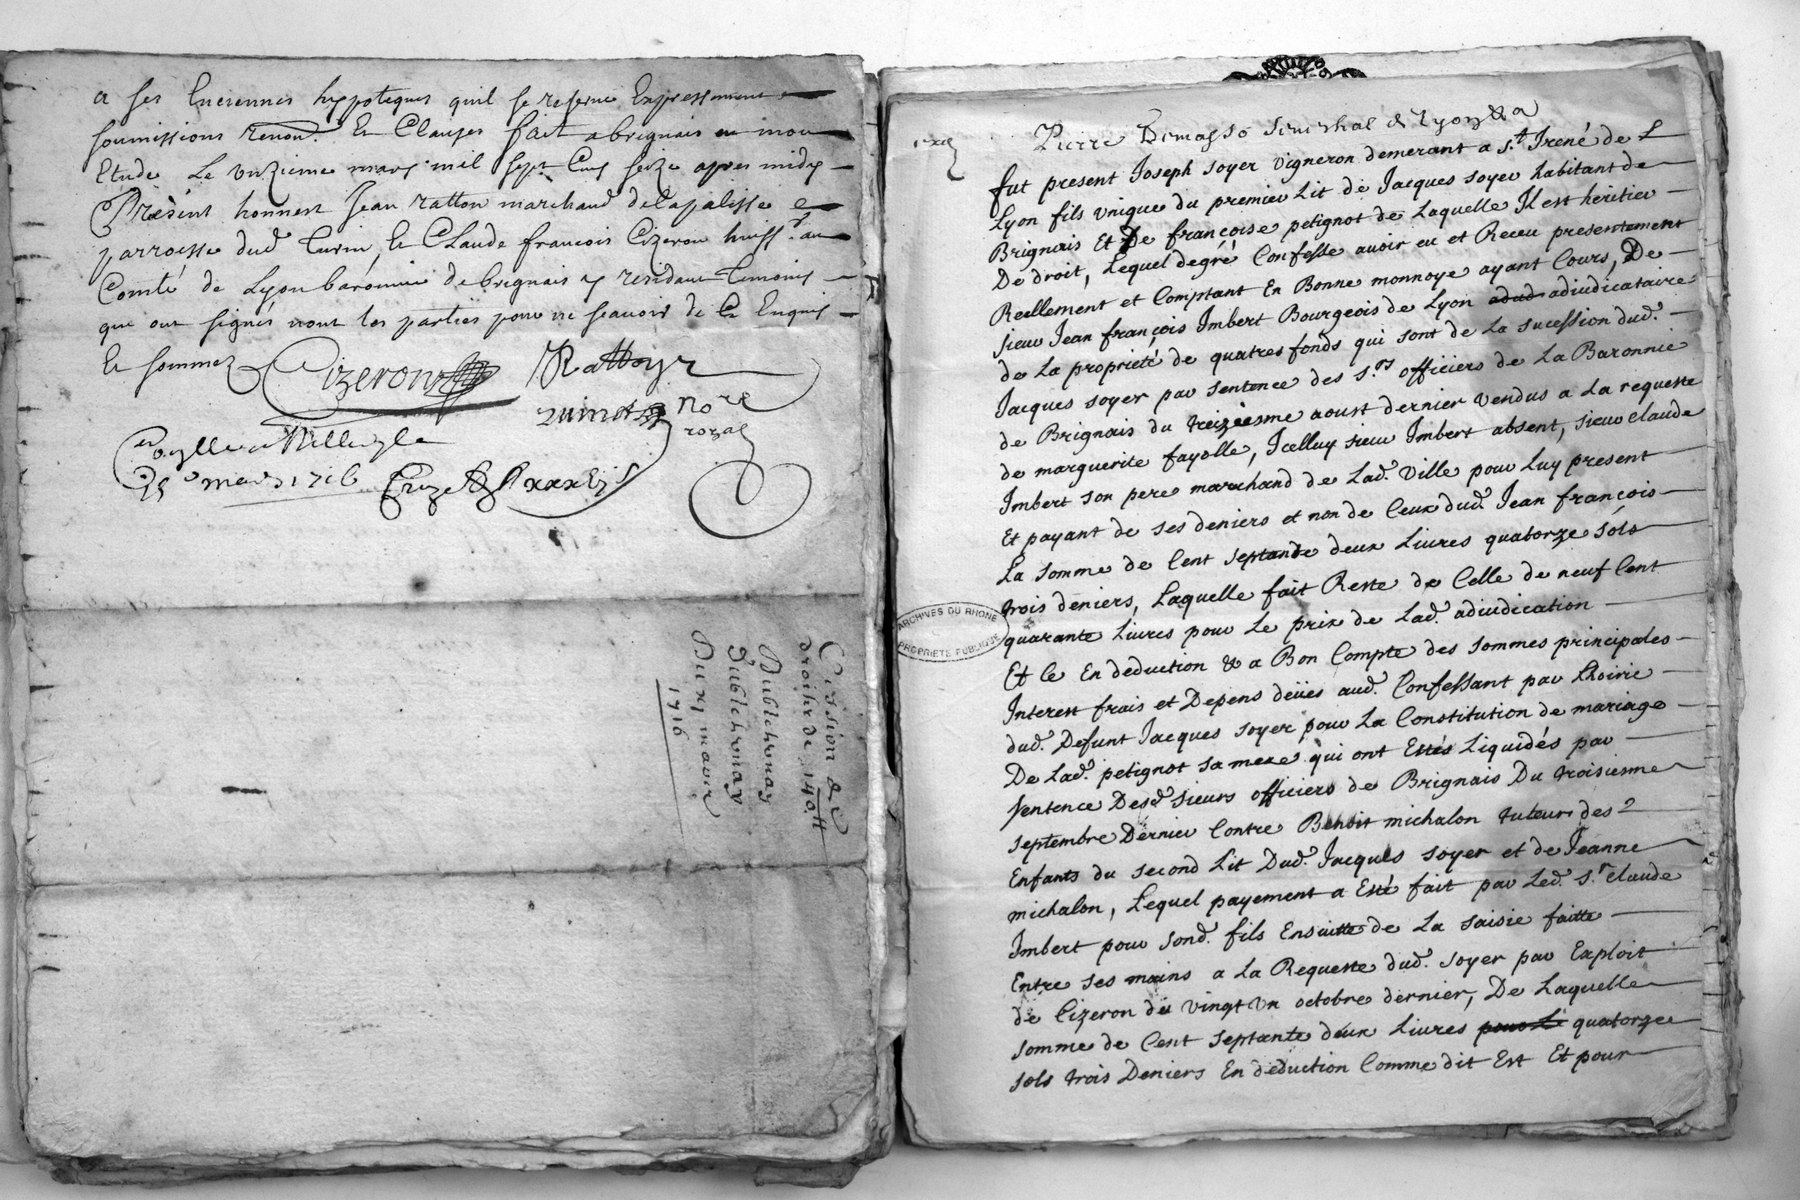 a ses Entiennes hypoteques quil se reserve Expressement
soumissions renon. Et Clauses fait a brignais en mon
Etude Le unzieme mars mil sept Cens seize apres midy
Present honnest Jean ratton marchand delapalisse
parroisse dud. Curin, Et Claude francois Cizeron huiss.r au
Comté de Lyon baronnie de brignais y residant temoins
que ont signés nont les parties pour ne scavoir de ce Enquis
Et sommez
Cizeron
Rattoyr
nore
royal
mars 1716
Cession de
droits de 140tt
Dublethonay
Dublethonay
Du xj mars
1716
ARCHIVES DU RHONE
PROPRIETE PUBLIQUE
Pierre Senechal de Lyon
fut present Joseph soyer vigneron demerant a s.t Irené de L
Lyon fils unique du premier Lit de Jacques soyer habitant de
Brignais Et De françoise petignot de Laquelle Il est heritier
De droit, Lequel degré Confesse avoir eu et Receu presentement
Reellement et Comptant En Bonne monnoye ayant Cours, De
sieur Jean françois Imbert Bourgeois de Lyon adud adiudicataire
de La proprieté de quatres fonds qui sont de La sucession dud.
Jacques soyer par sentence des s.rs officiers de La Baronnie
de Brignais du treiziesme aoust dernier vendus a La requeste
de marguerite fayolle, Icelluy sieur Imbert absent, sieur claude
Imbert son pere marchand de Lad. ville pour Luy present
Et payant de ses deniers et non de Ceux dud. Jean françois
La somme de Cent septante deux Livres quatorze sols
trois deniers, Laquelle fait Reste de Celle de neuf Cent
quarante Livres pour Le prix de Lad. adiudication
Et ce En deduction & a Bon Compte des sommes principales
Interest frais et Depens deües aud. Confessant par Lhoirie
dud. Defunt Jacques soyer pour La Constitution de mariage
De Lad. petignot sa mere qui ont Estés Liquidés par
sentence Desd. sieurs officiers de Brignais Du troisiesme
septembre Dernier Contre Benoit michalon tuteur des
Enfants du second Lit Dud. Jacques soyer et de Jeanne
michalon, Lequel payement a Esté fait par Led. s.r claude
Imbert pour sond. fils Ensuitte de La saisie faitte
Entre ses mains a La Requeste dud. soyer par Exploit
de Cizeron du vingt un octobre dernier, De Laquelle
somme de Cent septante deux Livres pour Le quatorze
sols trois Deniers En deduction Comme dit Est Et pour